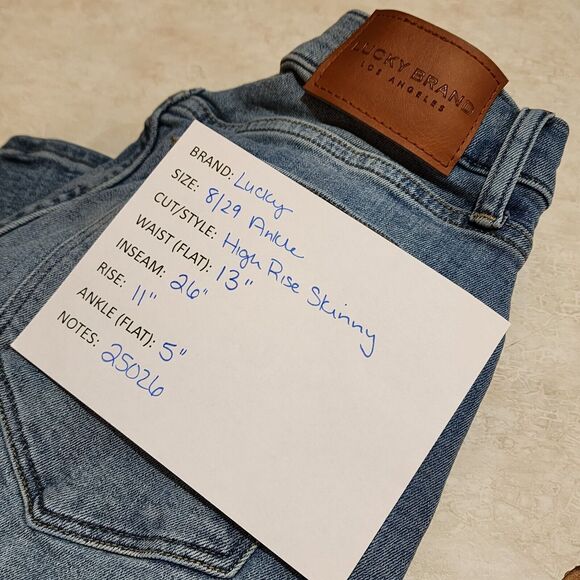 LUCKY BRAND
LOS ANGELES
BRAND: Lucky
SIZE: 8/29 Ankle
CUT/STYLE: High Rise Skinny
WAIST (FLAT): 13"
INSEAM: 26"
RISE: 11"
ANKLE (FLAT): 5"
NOTES: 25026